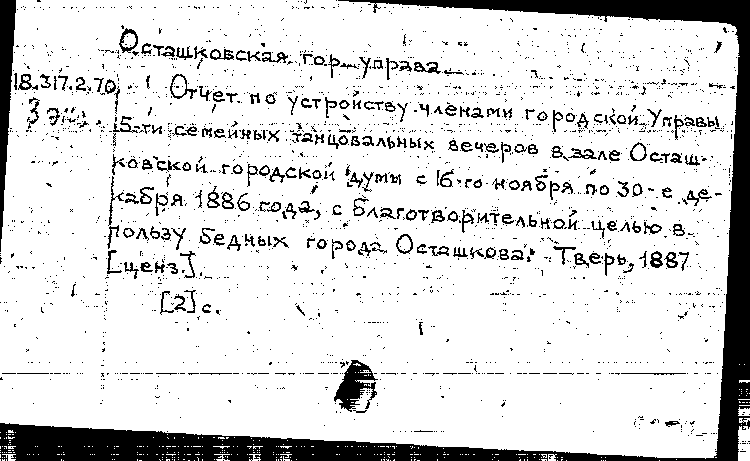 Осташковская гор. управа.
18.317.2.70
3 экз.
Отчет по устройству членами городской Управы
5-ти семейных танцовальных вечеров в зале Осташ-
ковской городской думы с 16-го ноября по 30-е де-
кабря 1886 года, с благотворительной целью в
пользу бедных города Осташкова. Тверь, 1887
[ценз.].
[2] с.